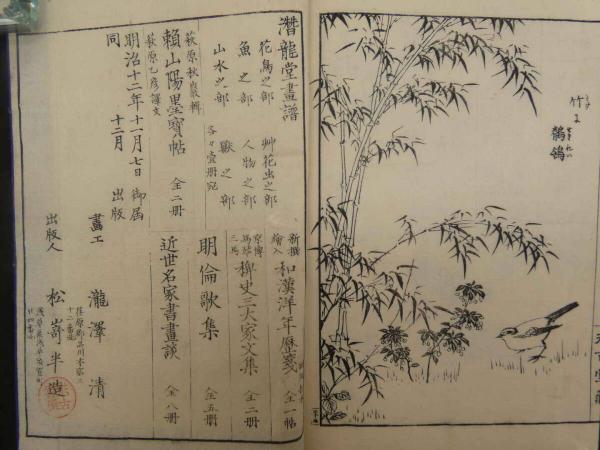 竹に
鶺鴒
せきれい
潛龍堂畫譜
花鳥之部
艸花虫之部
魚之部
人物之部
山水之部
獸之部
各々壹册宛
萩原秋巖輯
賴山陽墨寶帖 全二册
萩原乙彦譯文
明治十二年十一月七日御届
同 十二月 出版
新撰
繪入
和漢洋年歷箋 全一帖
京傳
馬琴
三馬
稗史三大家文集 全二册
明倫歌集 全五册
近世名家書畫談 全八册
畫工 瀧澤清
出版人 松嵜半造